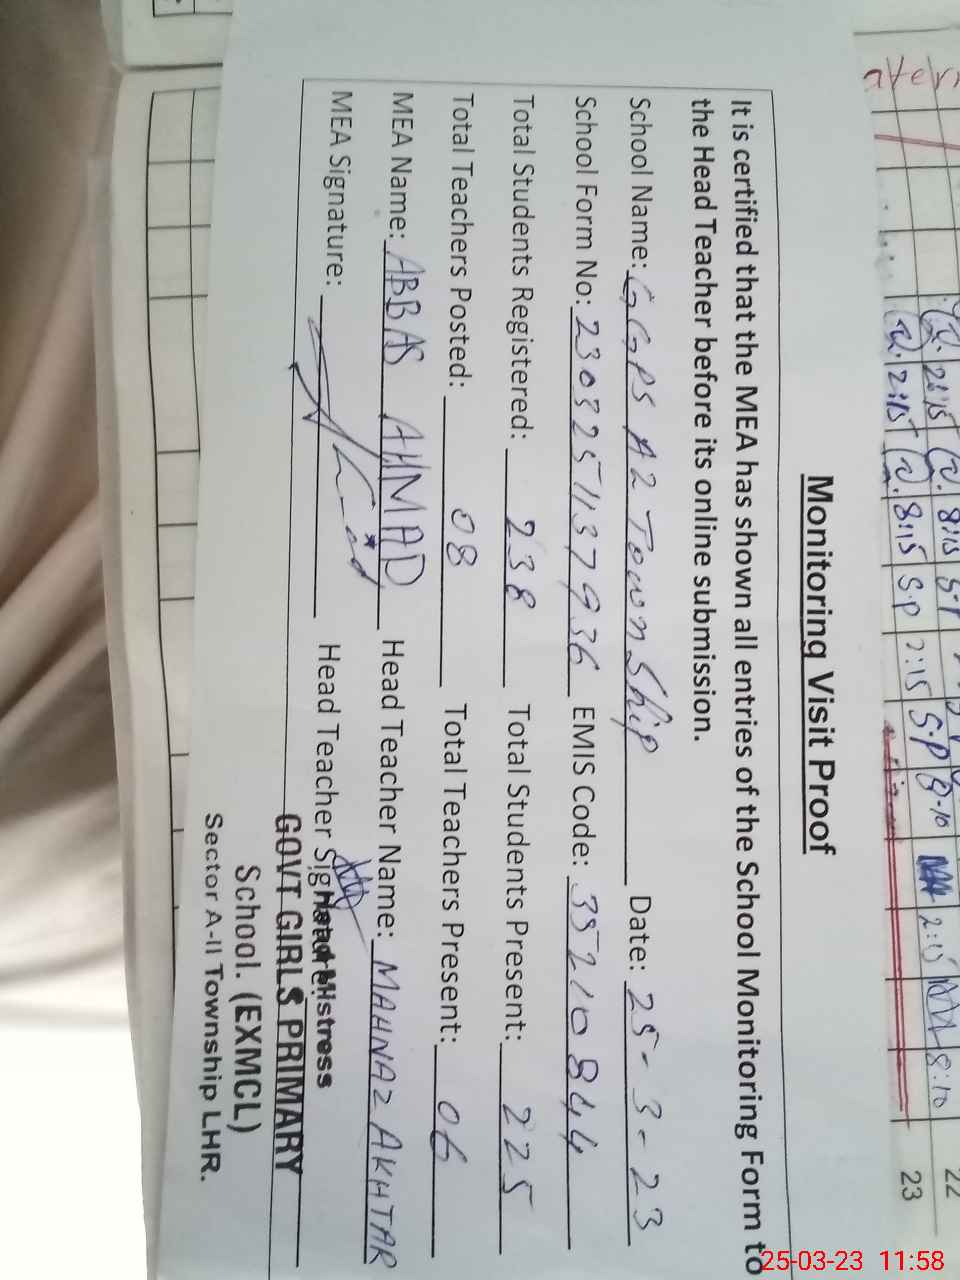 Monitoring Visit Proof
It is certified that the MEA has shown all entries of the School Monitoring Form to
the Head Teacher before its online submission.
School Name: GGPS A2 Township Date: 25-3-23
School Form No: 2303251137936 EMIS Code: 35210844
Total Students Registered: 238 Total Students Present: 225
Total Teachers Posted: 08 Total Teachers Present: 06
MEA Name: ABBAS AHMAD Head Teacher Name: MAHNAZ AKHTAR
MEA Signature: Head Teacher Signature:
Head Mistress
GOVT GIRLS PRIMARY
School. (EXMCL)
Sector A-II Township LHR.
22
23
2:15 8:15 S.P 2:15 S.P 8-10 2:15 8:10
25-03-23 11:58